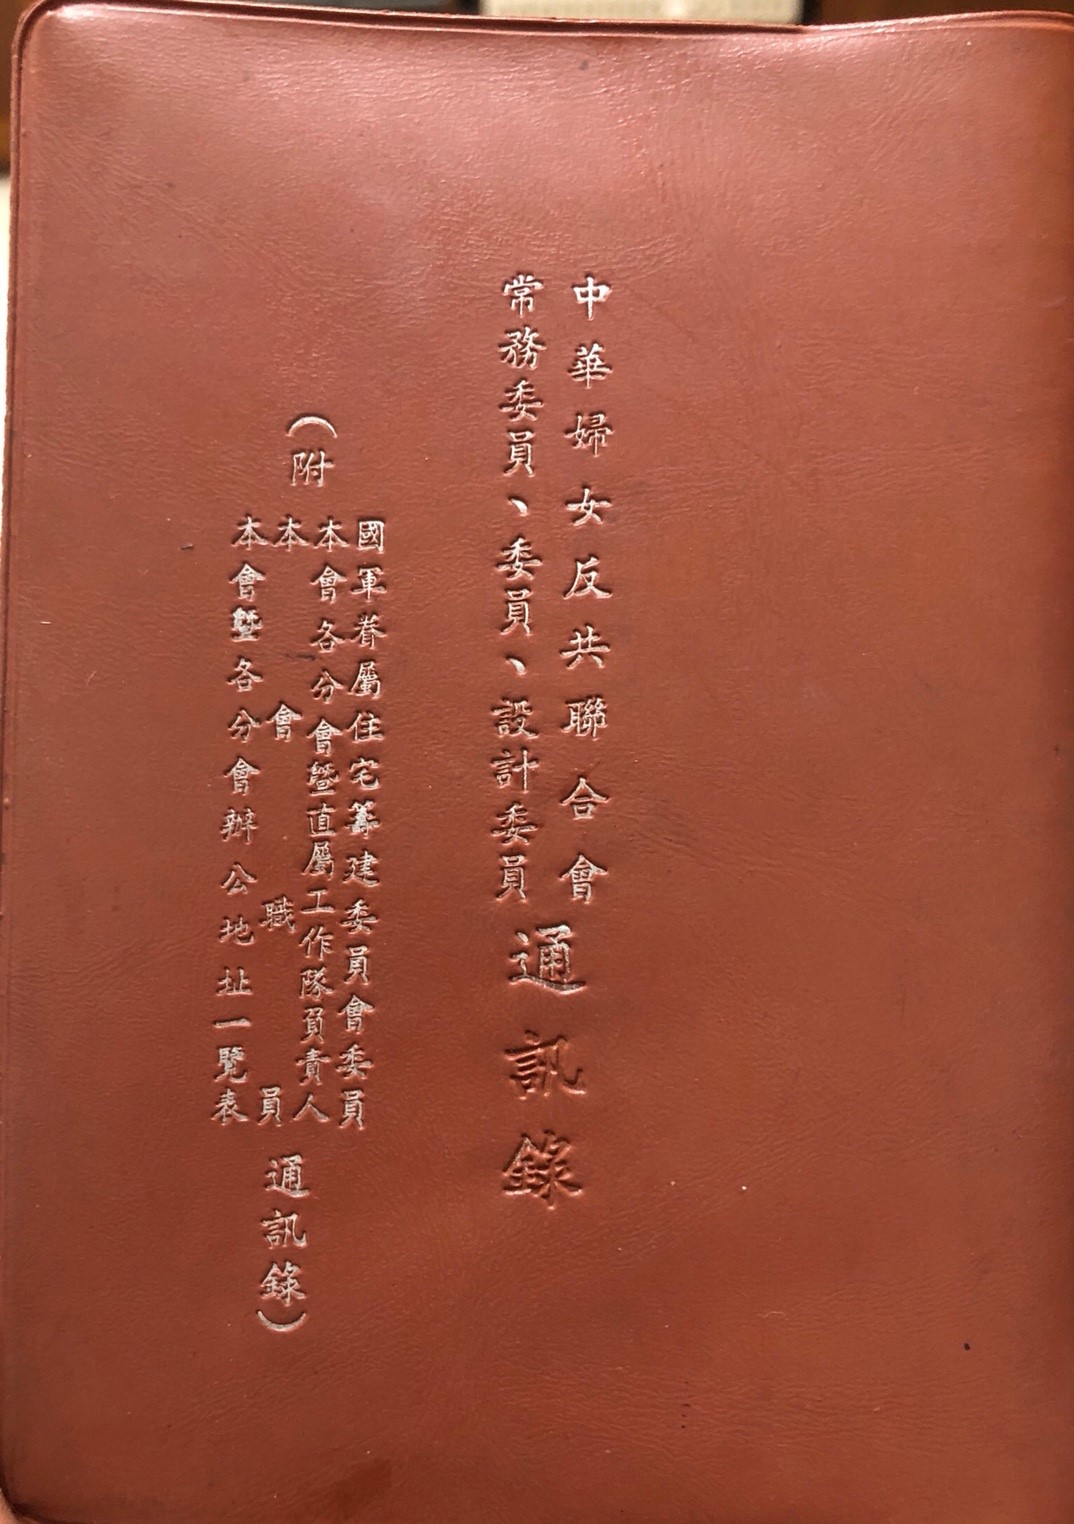 中華婦女反共聯合會
常務委員、委員、設計委員
通訊錄
（附
國軍眷屬住宅籌建委員會委員
本會各分會暨直屬工作隊負責人
本會職員
本會暨各分會辦公地址一覽表
通訊錄）